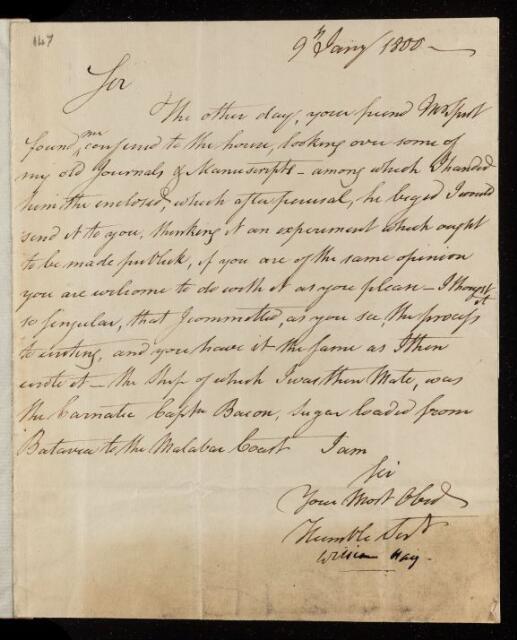 147
9th Jany 1800 —
Sir
The other day, your friend Mr
found me confined to the house, looking over some of
my old Journals & Manuscripts – among which I handed
him the enclosed, which after perusal, he beged I would
send it to you, thinking it an experiment which ought
to be made publick, if you are of the same opinion
you are welcome to do with it as you please – I thought it
so singular, that I committed, as you see, the process
to writing, and you have it the same as I then
wrote it – the Ship of which I was then Mate, was
the Carnatic Captn Bacon, Sugar loaded from
Batavia to the Malabar Coast I am
Sir
Your Most Obed
Humble Servt
William Hay